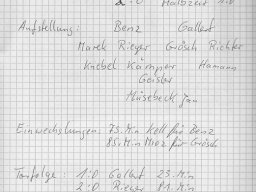 2:0 Halbzeit 1:0
Aufstellung: Benz Gallert
Marek Rieger Grösch Richter
Knebel Kämper Hamann
Geisler
Müsebeck Jan
Einwechslungen: 75. Min Kell für Benz
85. Min Merz für Grösch
Torfolge: 1:0 Gallert 25. Min
2:0 Rieger 81. Min